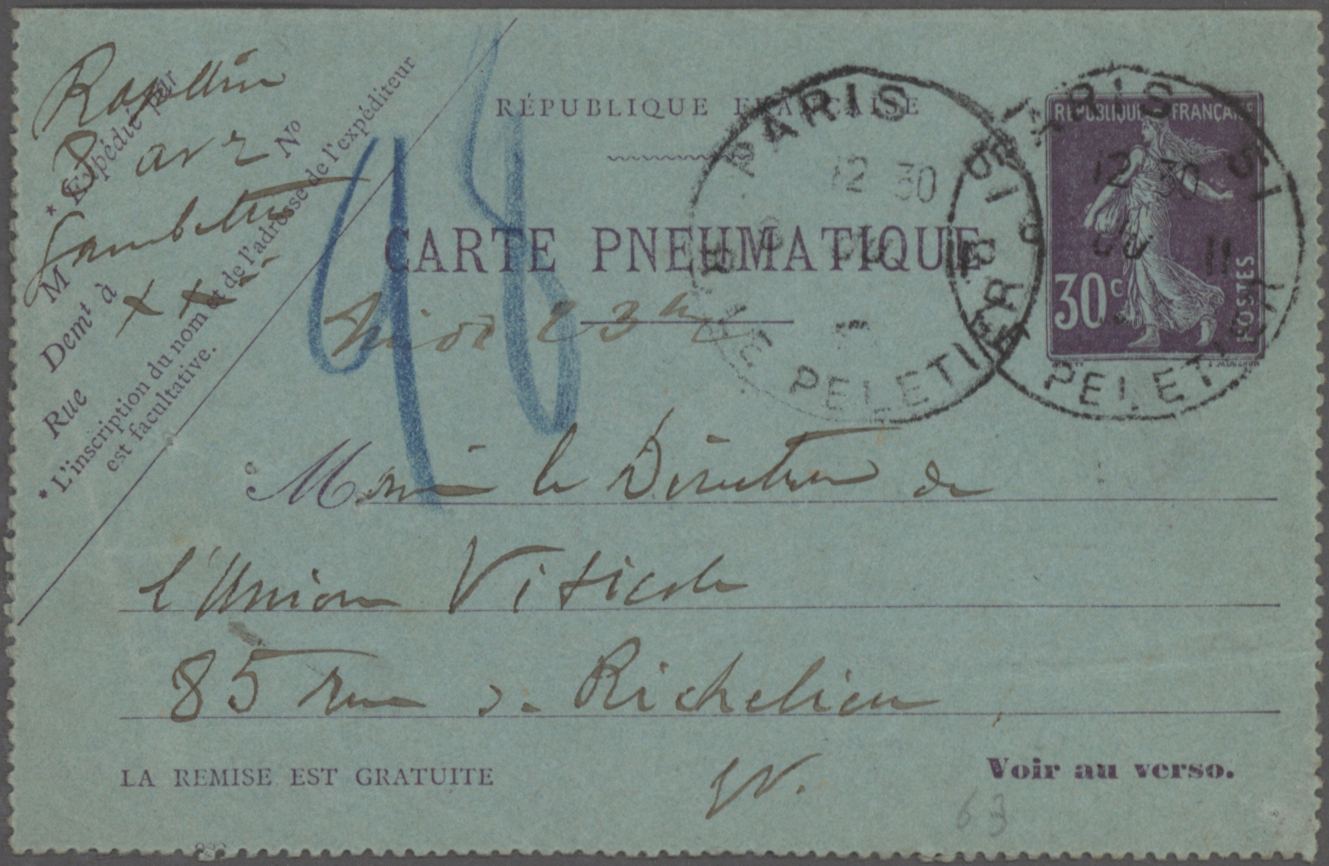 * Expédié par
M
Demt à
Rue No
* L'inscription du nom et de l'adresse de l'expéditeur
est facultative.
8 av
Gambetta
XX
98
RÉPUBLIQUE FRANÇAISE
CARTE PNEUMATIQUE
PARIS 51
12 30
11
R. LE PELETIER
PARIS 51
12 30
11
PELETIER
RÉPUBLIQUE FRANÇAISE
30 c
POSTES
le Directeur de
l'Union Viticole
85 rue de Richelieu
LA REMISE EST GRATUITE
Voir au verso.
EV.
63